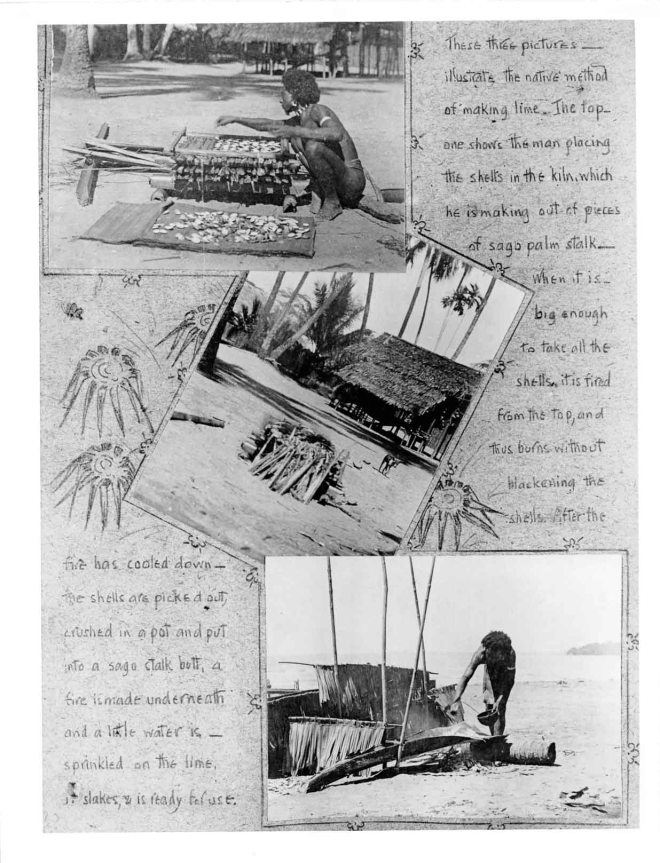 These three pictures —
illustrate the native method
of making lime. The top-
one shows the man placing
the shells in the kiln, which
he is making out of pieces
of sago palm stalk. —
When it is -
big enough
to take all the
shells, it is fired
from the top, and
thus burns without
blackening the
shells. After the
fire has cooled down —
the shells are picked out,
crushed in a pot and put
into a sago stalk bott, a
fire is made underneath
and a little water is —
sprinkled on the lime,
it slakes, & is ready for use.